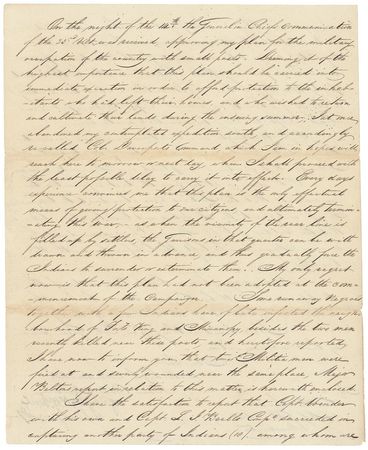 On the night of the 14th the General in Chief's communication
of the 22d Ulto. was received, approving my plan for the military
occupation of the country with small posts. Deeming it of the
highest importance that this plan should be carried into
immediate execution in order to afford protection to the inhab-
-itants who had left their homes, and who wished to return
and cultivate their lands during the ensuing summer, I at once
abandoned my contemplated expedition south, and accordingly
re-called Col. Davenport's command, which I am in hopes will
reach here to-morrow or next day, when I shall proceed with
the least possible delay to carry it into effect. Every day's
experience convinces me that this plan is the only effectual
means of giving protection to our citizens and ultimately termin-
-ating this war,- as when the vicinity of the rear line is
filled up by settlers, the Garrisons in that quarter can be with-
drawn and thrown in advance, and thus gradually force the
Indians to surrender or exterminate them. My only regret
now is that this plan had not been adopted at the com-
-mencement of the Campaign. Some runaway negroes
together with a few Indians have of late infested the
neighborhood of Fort King and Micanopy, besides the two men
recently killed near these posts, and heretofore reported,
I have now to inform you that two Militia men were
fired at and severely wounded near the same place. Major
report in relation to this matter is herewith enclosed.
I have the satisfaction to report that Capt.
with his own and Capt. Comps. succeeded in
capturing another party of Indians (10) among whom are